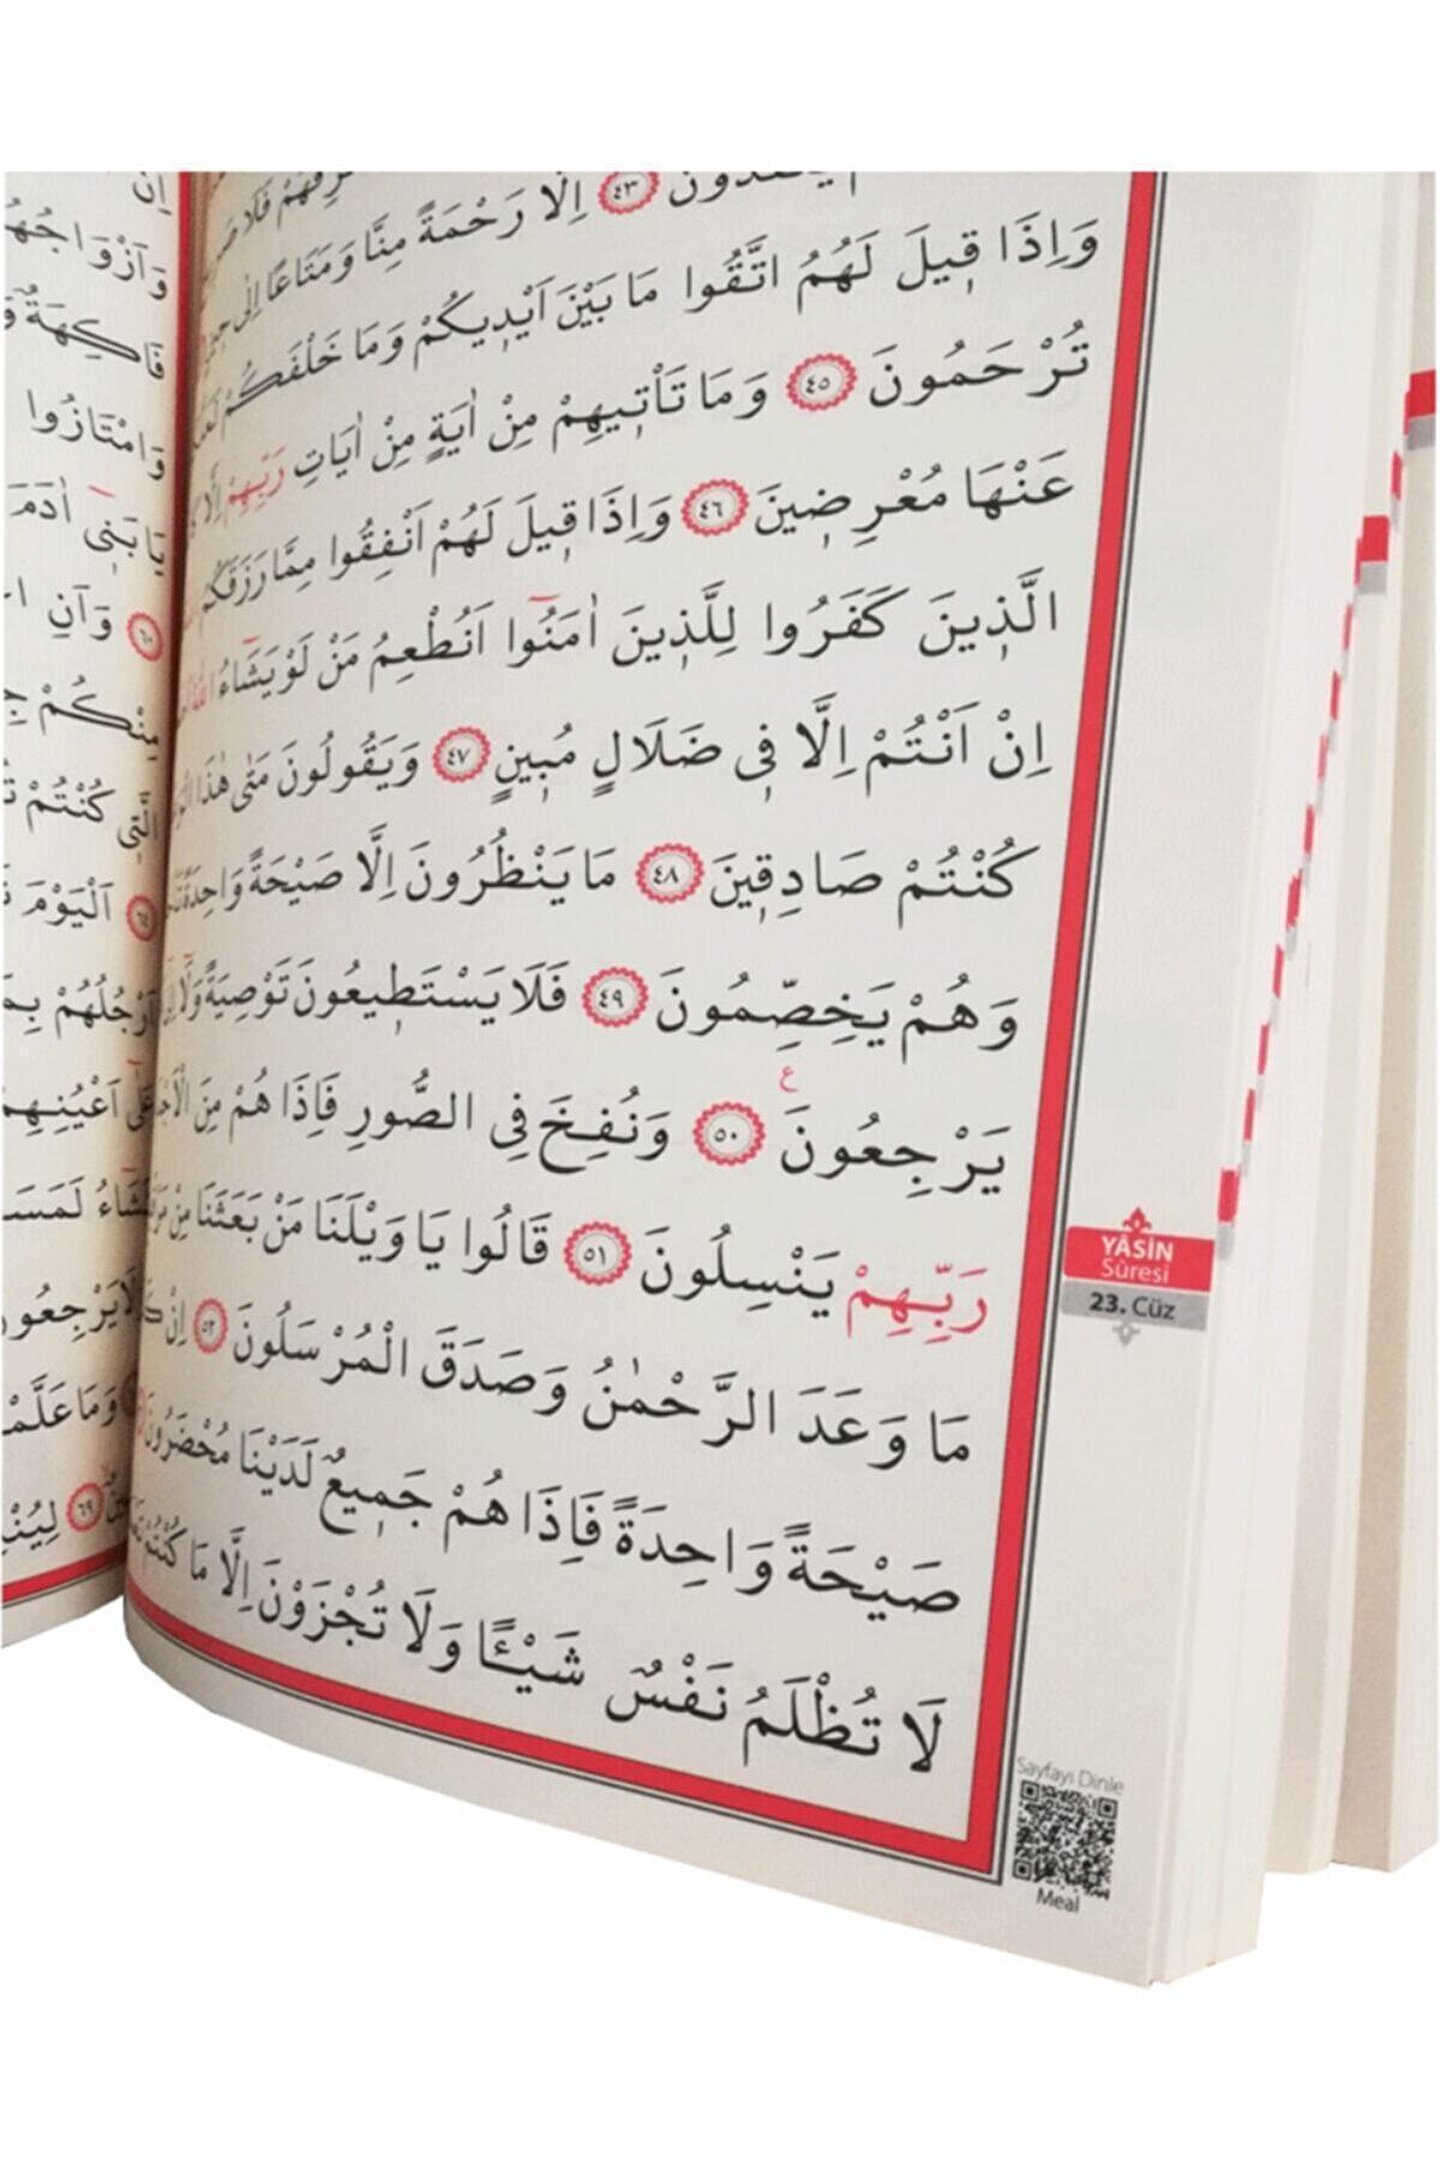 يُنْقَذُونَ ٤٣ اِلَّا رَحْمَةً مِنَّا وَمَتَاعًا اِلٰى
وَاِذَا قٖيلَ لَهُمُ اتَّقُوا مَا بَيْنَ اَيْدٖيكُمْ وَمَا خَلْفَكُمْ
تُرْحَمُونَ ٤٥ وَمَا تَأْتٖيهِمْ مِنْ اٰيَةٍ مِنْ اٰيَاتِ رَبِّهِمْ اِلَّا
عَنْهَا مُعْرِضٖينَ ٤٦ وَاِذَا قٖيلَ لَهُمْ اَنْفِقُوا مِمَّا رَزَقَكُمُ
الَّذٖينَ كَفَرُوا لِلَّذٖينَ اٰمَنُٓوا اَنُطْعِمُ مَنْ لَوْ يَشَٓاءُ اللّٰهُ
اِنْ اَنْتُمْ اِلَّا فٖى ضَلَالٍ مُبٖينٍ ٤٧ وَيَقُولُونَ مَتٰى هٰذَا
كُنْتُمْ صَادِقٖينَ ٤٨ مَا يَنْظُرُونَ اِلَّا صَيْحَةً وَاحِدَةً
وَهُمْ يَخِصِّمُونَ ٤٩ فَلَا يَسْتَطٖيعُونَ تَوْصِيَةً وَلَٓا
يَرْجِعُونَ ع ٥٠ وَنُفِخَ فِى الصُّورِ فَاِذَا هُمْ مِنَ
رَبِّهِمْ يَنْسِلُونَ ٥١ قَالُوا يَا وَيْلَنَا مَنْ بَعَثَنَا مِنْ
مَا وَعَدَ الرَّحْمٰنُ وَصَدَقَ الْمُرْسَلُونَ ٥٢ اِنْ
صَيْحَةً وَاحِدَةً فَاِذَا هُمْ جَمٖيعٌ لَدَيْنَا مُحْضَرُونَ
لَا تُظْلَمُ نَفْسٌ شَيْـًٔا وَلَا تُجْزَوْنَ اِلَّا مَا كُنْتُمْ
YÂSİN
Sûresi
23. Cüz
Sayfayı Dinle
Meal
اِنَّ
وَاَزْوَاجُهُمْ
فَاكِهَةٌ
وَامْتَازُوا
يَا بَنٖٓى اٰدَمَ
٦٠ وَاَنِ
مِنْكُمْ
الَّتٖى كُنْتُمْ
٦٤ اَلْيَوْمَ
اَرْجُلُهُمْ
عَلٰٓى اَعْيُنِهِمْ
نَشَٓاءُ
يَرْجِعُونَ
وَمَا عَلَّمْنَاهُ
٦٩ لِيُنْذِرَ